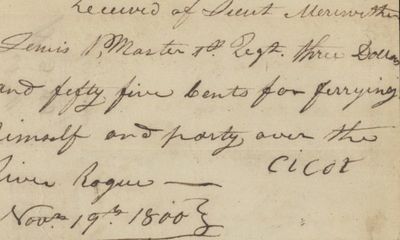 Received of Lieut Meriwether
Lewis P, Master 1st Regt. three Dollars
and fifty five Cents for ferrying
himself and party over the
River Rogue —
CICOT
Novr. 19th 1800